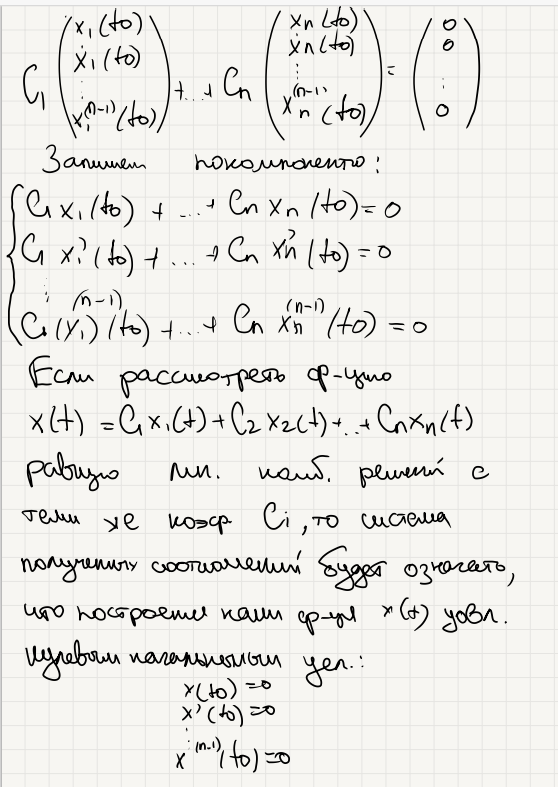 C₁ (x₁(t₀) ẋ₁(t₀) ⋮ x₁⁽ⁿ⁻¹⁾(t₀)) + ... + Cₙ (xₙ(t₀) ẋₙ(t₀) ⋮ xₙ⁽ⁿ⁻¹⁾(t₀)) = (0 0 ⋮ 0)
Запишем покомпонентно:
C₁ x₁(t₀) + ... + Cₙ xₙ(t₀) = 0
C₁ x₁'(t₀) + ... + Cₙ xₙ'(t₀) = 0
⋮
C₁ (x₁)⁽ⁿ⁻¹⁾(t₀) + ... + Cₙ xₙ⁽ⁿ⁻¹⁾(t₀) = 0
Если рассмотреть ф-цию
x(t) = C₁x₁(t) + C₂x₂(t) + ... + Cₙxₙ(t)
равную лин. комб. решений с
теми же коэф. Ci, то система
полученных соотношений будет означать,
что построенная нами ф-ция x(t) удовл.
нулевым начальным усл.:
x(t₀) = 0
x'(t₀) = 0
⋮
x⁽ⁿ⁻¹⁾(t₀) = 0